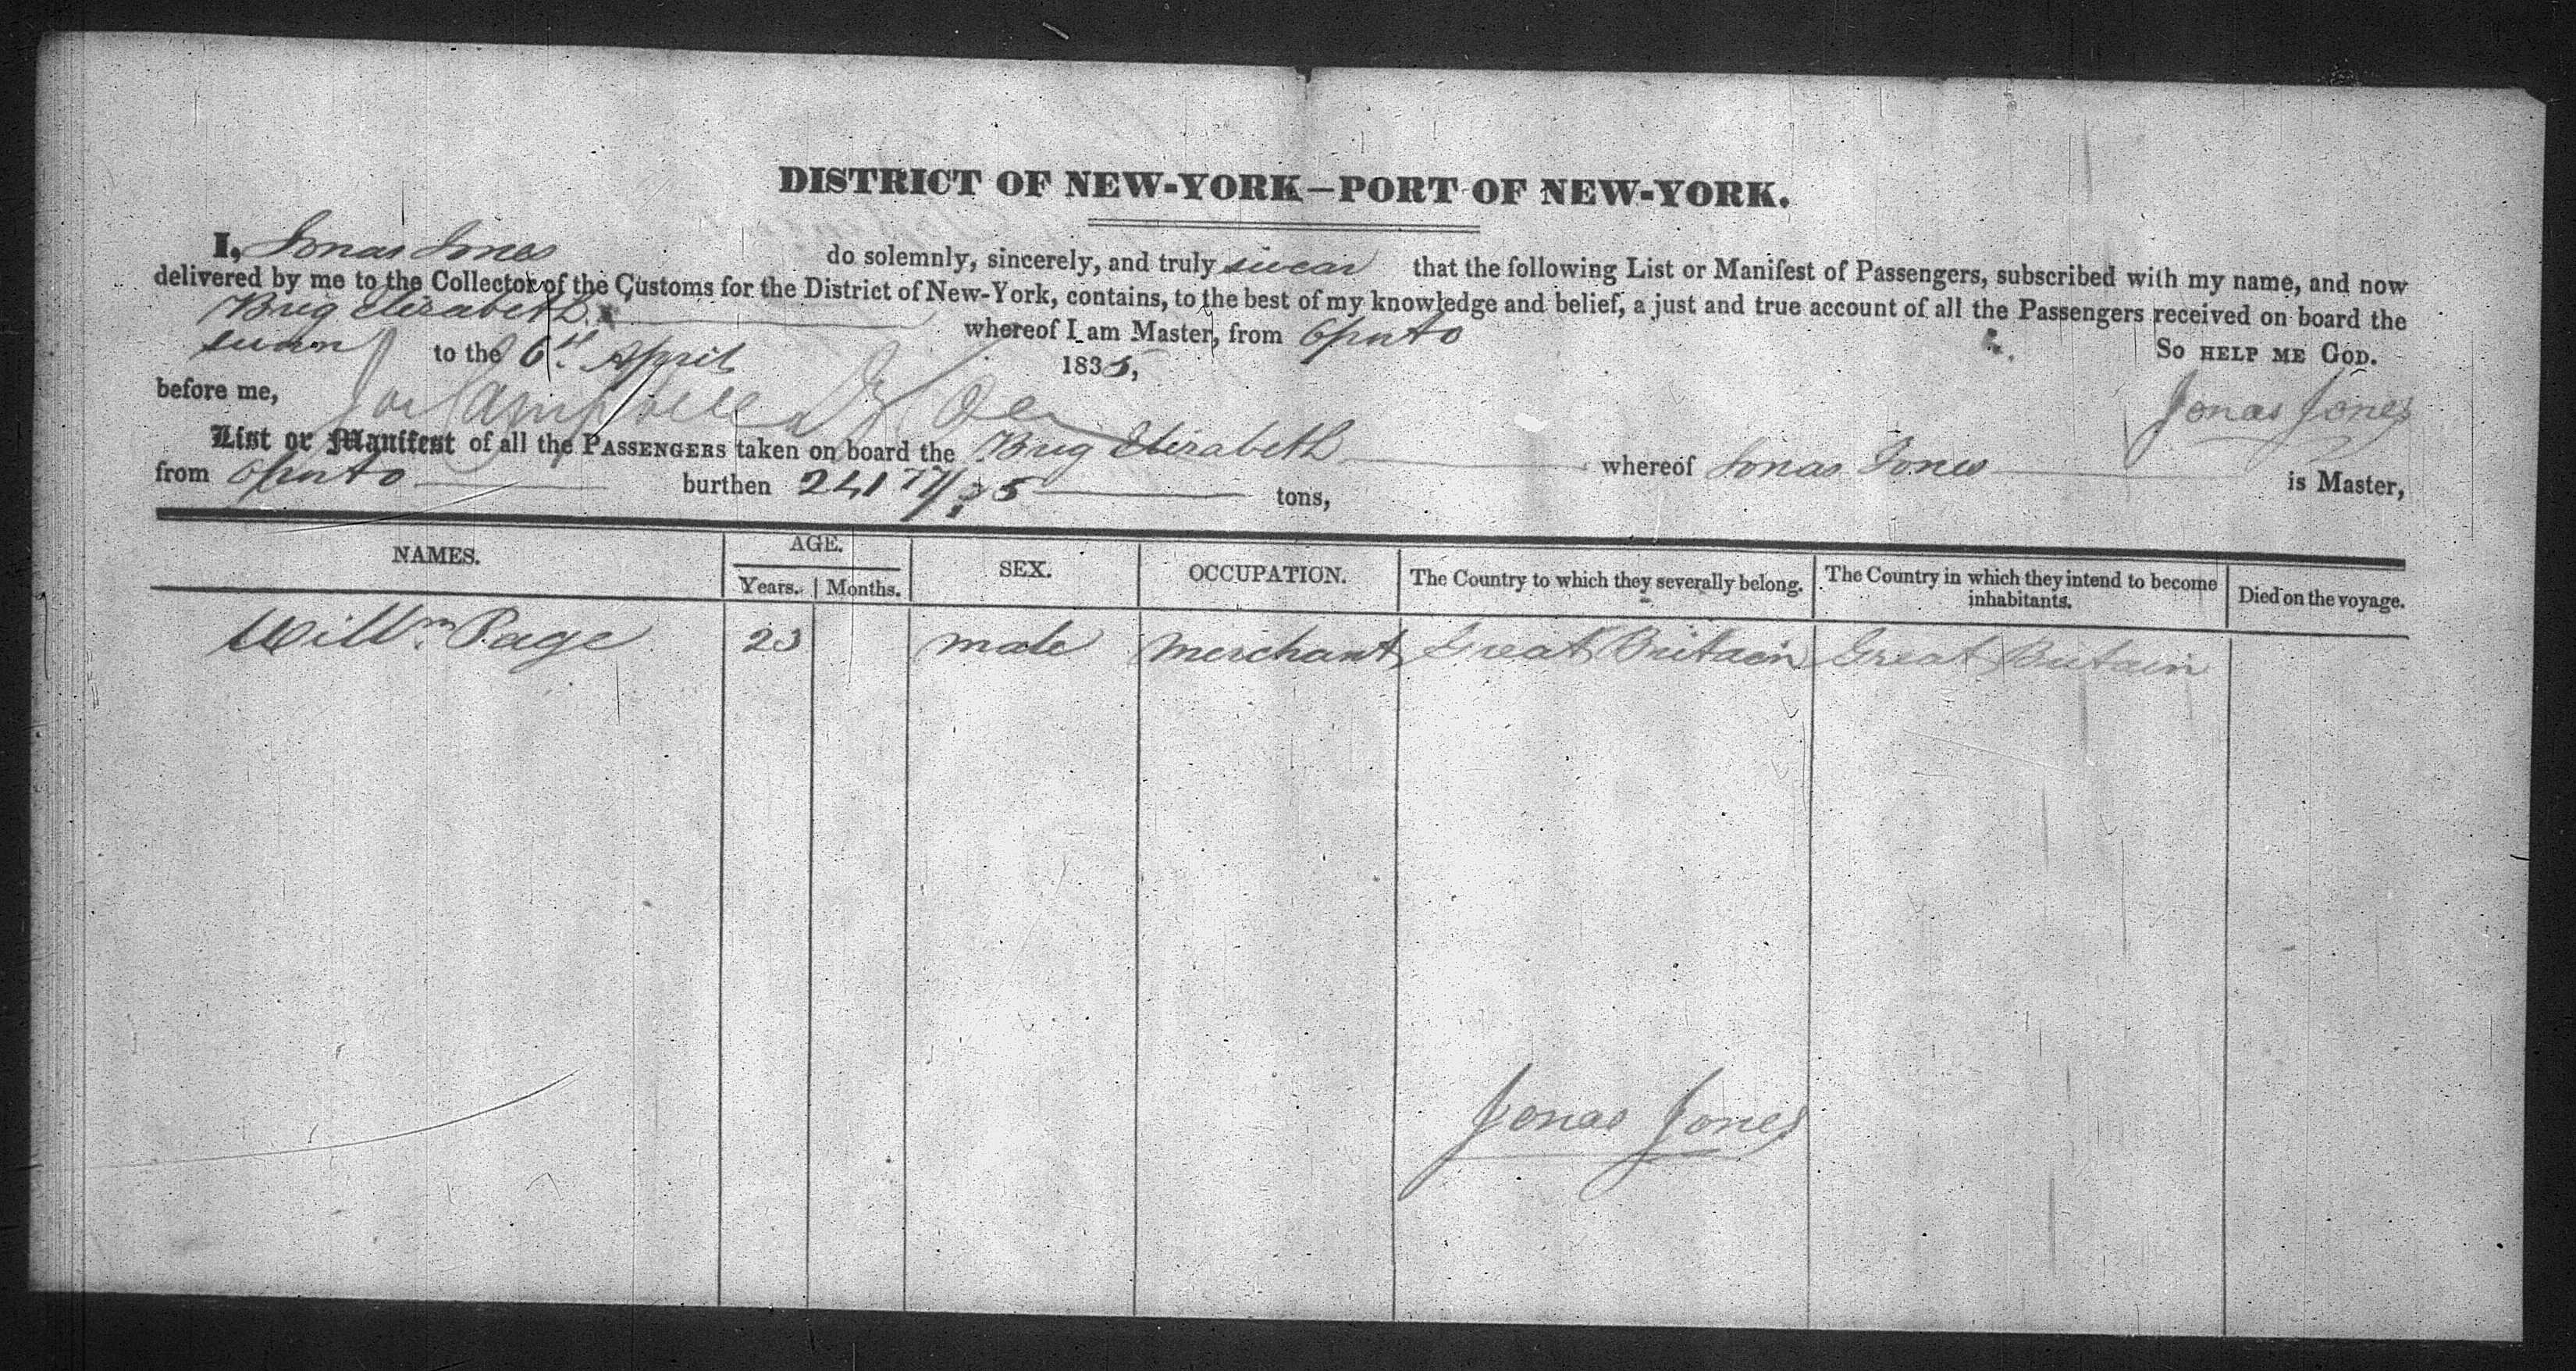 DISTRICT OF NEW-YORK—PORT OF NEW-YORK.
I, Jonas Jones do solemnly, sincerely, and truly swear that the following List or Manifest of Passengers, subscribed with my name, and now
delivered by me to the Collector of the Customs for the District of New-York, contains, to the best of my knowledge and belief, a just and true account of all the Passengers received on board the
Brig Elizabeth whereof I am Master, from Oporto
sworn to the 6th April 1835, So HELP ME GOD.
before me, Jonas Jones
List or Manifest of all the PASSENGERS taken on board the Brig Elizabeth whereof Jonas Jones is Master,
from Oporto burthen 241 77/95 tons,
NAMES. AGE. SEX. OCCUPATION. The Country to which they severally belong. The Country in which they intend to become inhabitants. Died on the voyage.
Years. Months.
Willm Page 23 male merchant Great Britain Great Britain
Jonas Jones